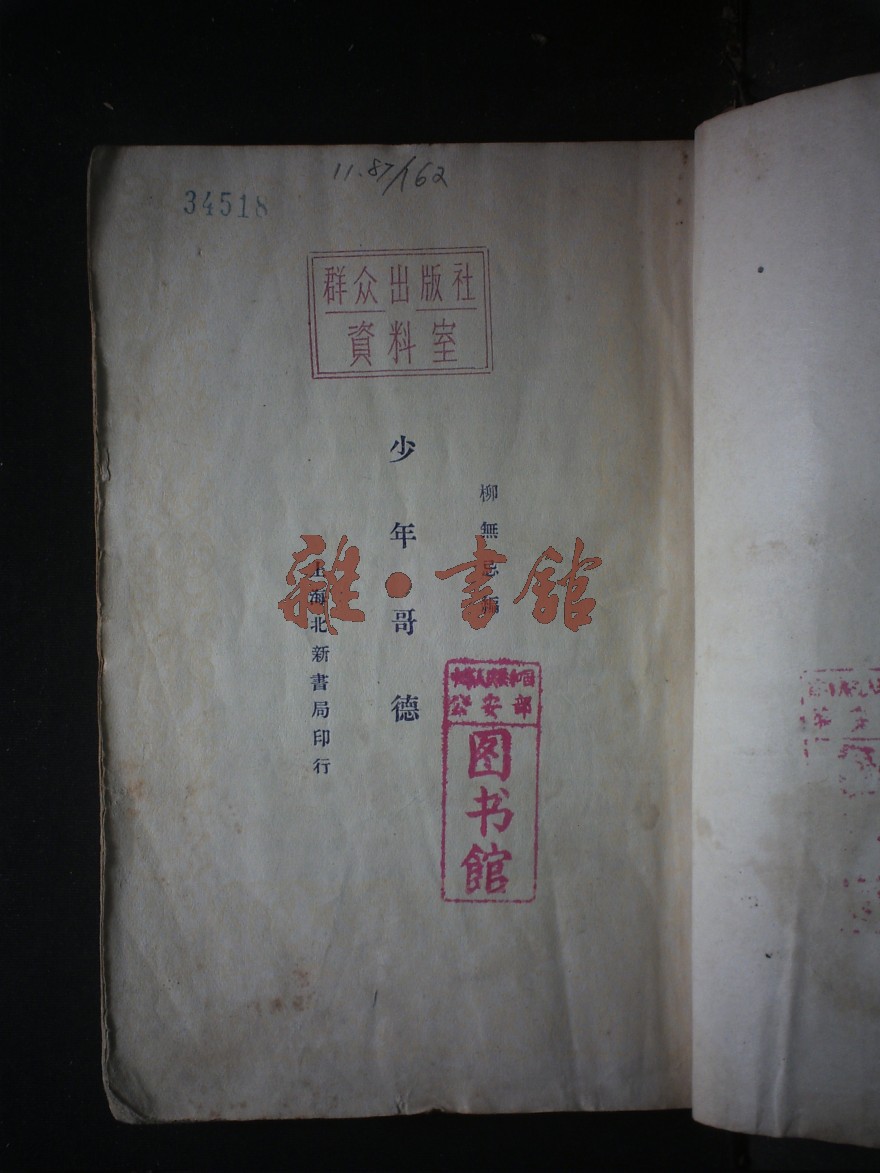 11.87/162
34518
群众出版社
資料室
柳無忌編
少年哥德
上海北新書局印行
雜·書館
中华人民共和国
公安部
图书馆